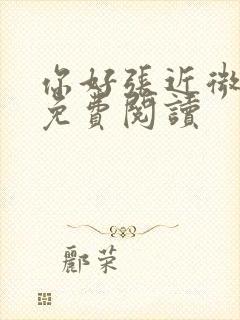 你好張近微
免費閱讀
酈荣